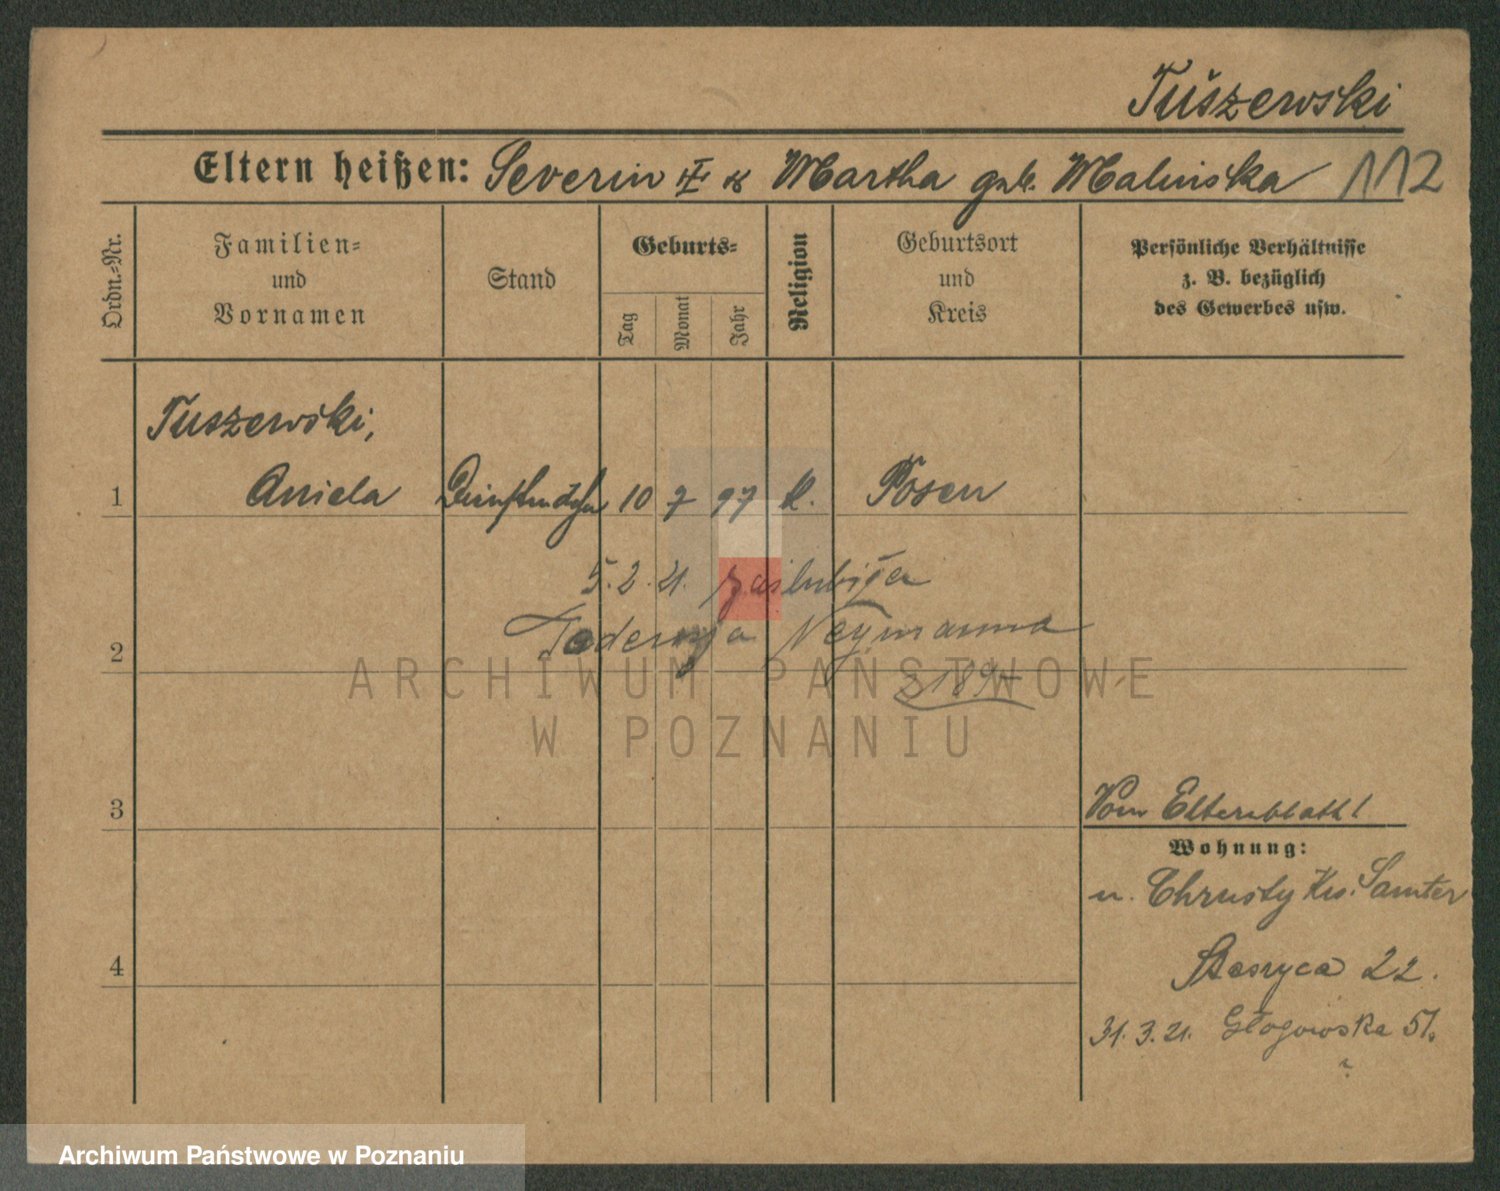 Tuszewski
Eltern heißen: Severin & Martha geb. Malinska 112
Ordn.-Nr.
Familien-
und
Vornamen
Stand
Geburts-
Tag
Monat
Jahr
Religion
Geburtsort
und
Kreis
Persönliche Verhältnisse
z. B. bezüglich
des Gewerbes usw.
Tuszewski,
1 Aniela 10 7 97 k. Posen
5. 2. 21. zaślubiła
Neymanna
2
1897
ARCHIWUM PAŃSTWOWE
W POZNANIU
3
Vom Elternblatt!
Wohnung:
n. Chrusty Krs. Samter
4
22.
31. 3. 21. Głogowska 51.
Archiwum Państwowe w Poznaniu